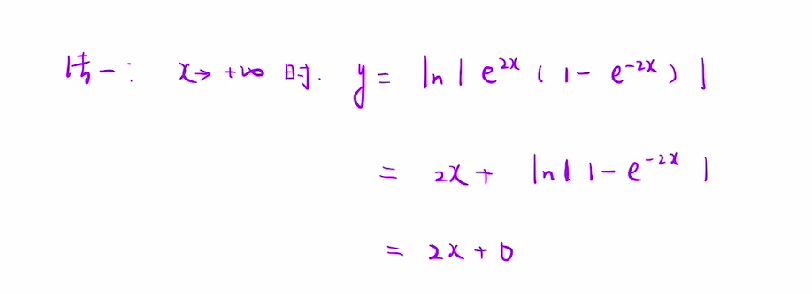 法一: x→ +∞ 时. y = ln | e^{2x} ( 1 - e^{-2x} ) |
= 2x + ln | 1 - e^{-2x} |
= 2x + 0